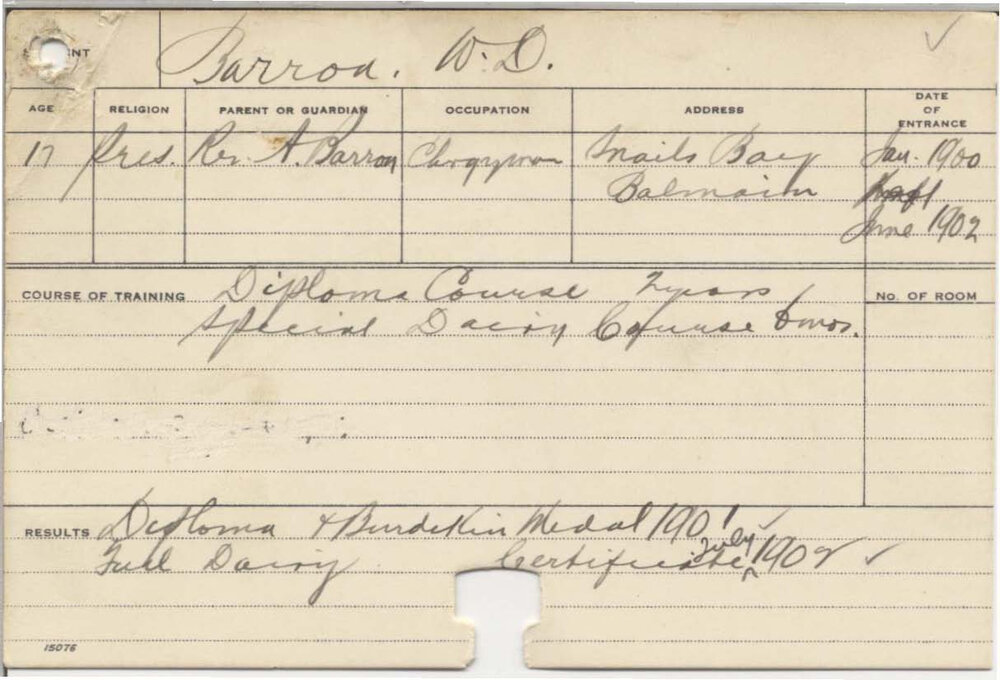 Barron. W. D.
AGE RELIGION PARENT OR GUARDIAN OCCUPATION ADDRESS DATE OF ENTRANCE
17 Pres. Rev. A. Barron Clergyman Snails Bay Jan. 1900
Balmain
June 1902
COURSE OF TRAINING Diploma Course 2 years No. OF ROOM
Special Dairy Course 6 mos.
RESULTS Diploma & Burdekin Medal 1901 ✓
Full Dairy Certificate July 1902 ✓
15076